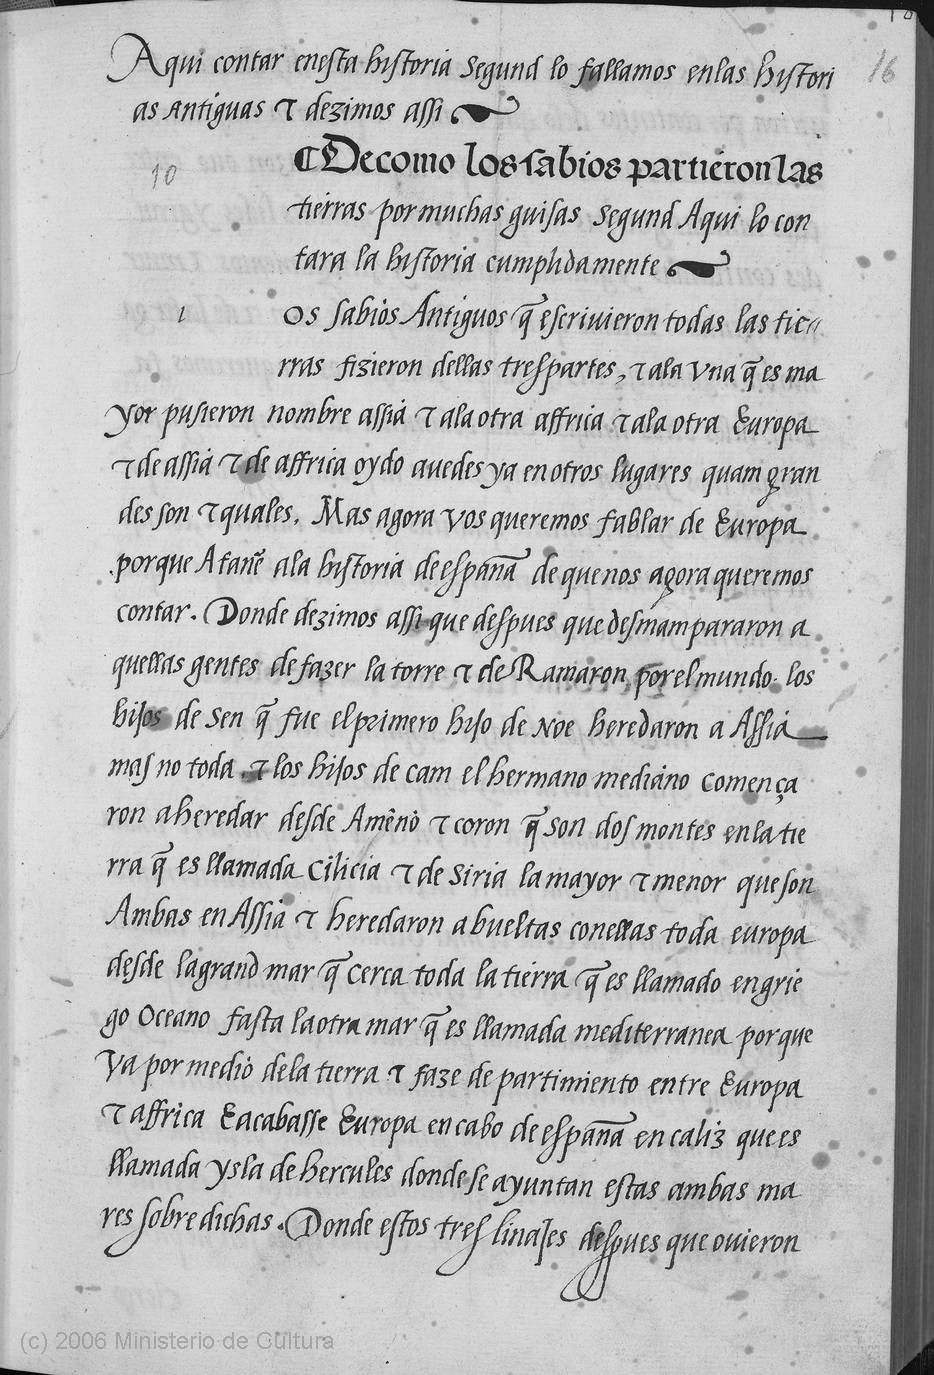 16
Aqui contar enesta historia Segund lo fallamos enlas histori
as Antiguas τ dezimos assi
10
¶ De como los sabios partieron las
tierras por muchas guisas Segund Aqui lo con
tara la historia cumplidamente
1
os sabios Antiguos q̃ escrivieron todas las tie
rras fizieron dellas tres partes, τ ala Vna q̃ es ma
yor pusieron nombre assia τ ala otra affrica τ ala otra Europa
τ de assia τ de affrica oydo auedes ya en otros lugares quam gran
des son τ quales. Mas agora vos queremos fablar de Europa
porque Atañe ala historia de españa de que nos agora queremos
contar. Donde dezimos assi que despues que desmampararon a
quellas gentes de fazer la torre τ de Ramaron por el mundo los
hijos de Sen q̃ fue el primero hijo de Noe heredaron a Assia
mas no toda τ los hijos de cam el hermano mediano Comença
ron a heredar desde Amêno τ coron q̃ son dos montes en la tie
rra q̃ es llamada Cilicia τ de Siria la mayor τ menor que son
Ambas en Assia τ heredaron a bueltas conellas toda europa
desde la grand mar q̃ cerca toda la tierra q̃ es llamado en grie
go Oceano fasta la otra mar q̃ es llamada mediterranea por que
Va por medio de la tierra τ faze de partimiento entre Europa
τ affrica Eacabasse Europa en cabo de españa en caliz que es
llamada ysla de hercules donde se ayuntan estas ambas ma
res sobre dichas. Donde estos tres linajes despues que ouieron
(c) 2006 Ministerio de Cultura